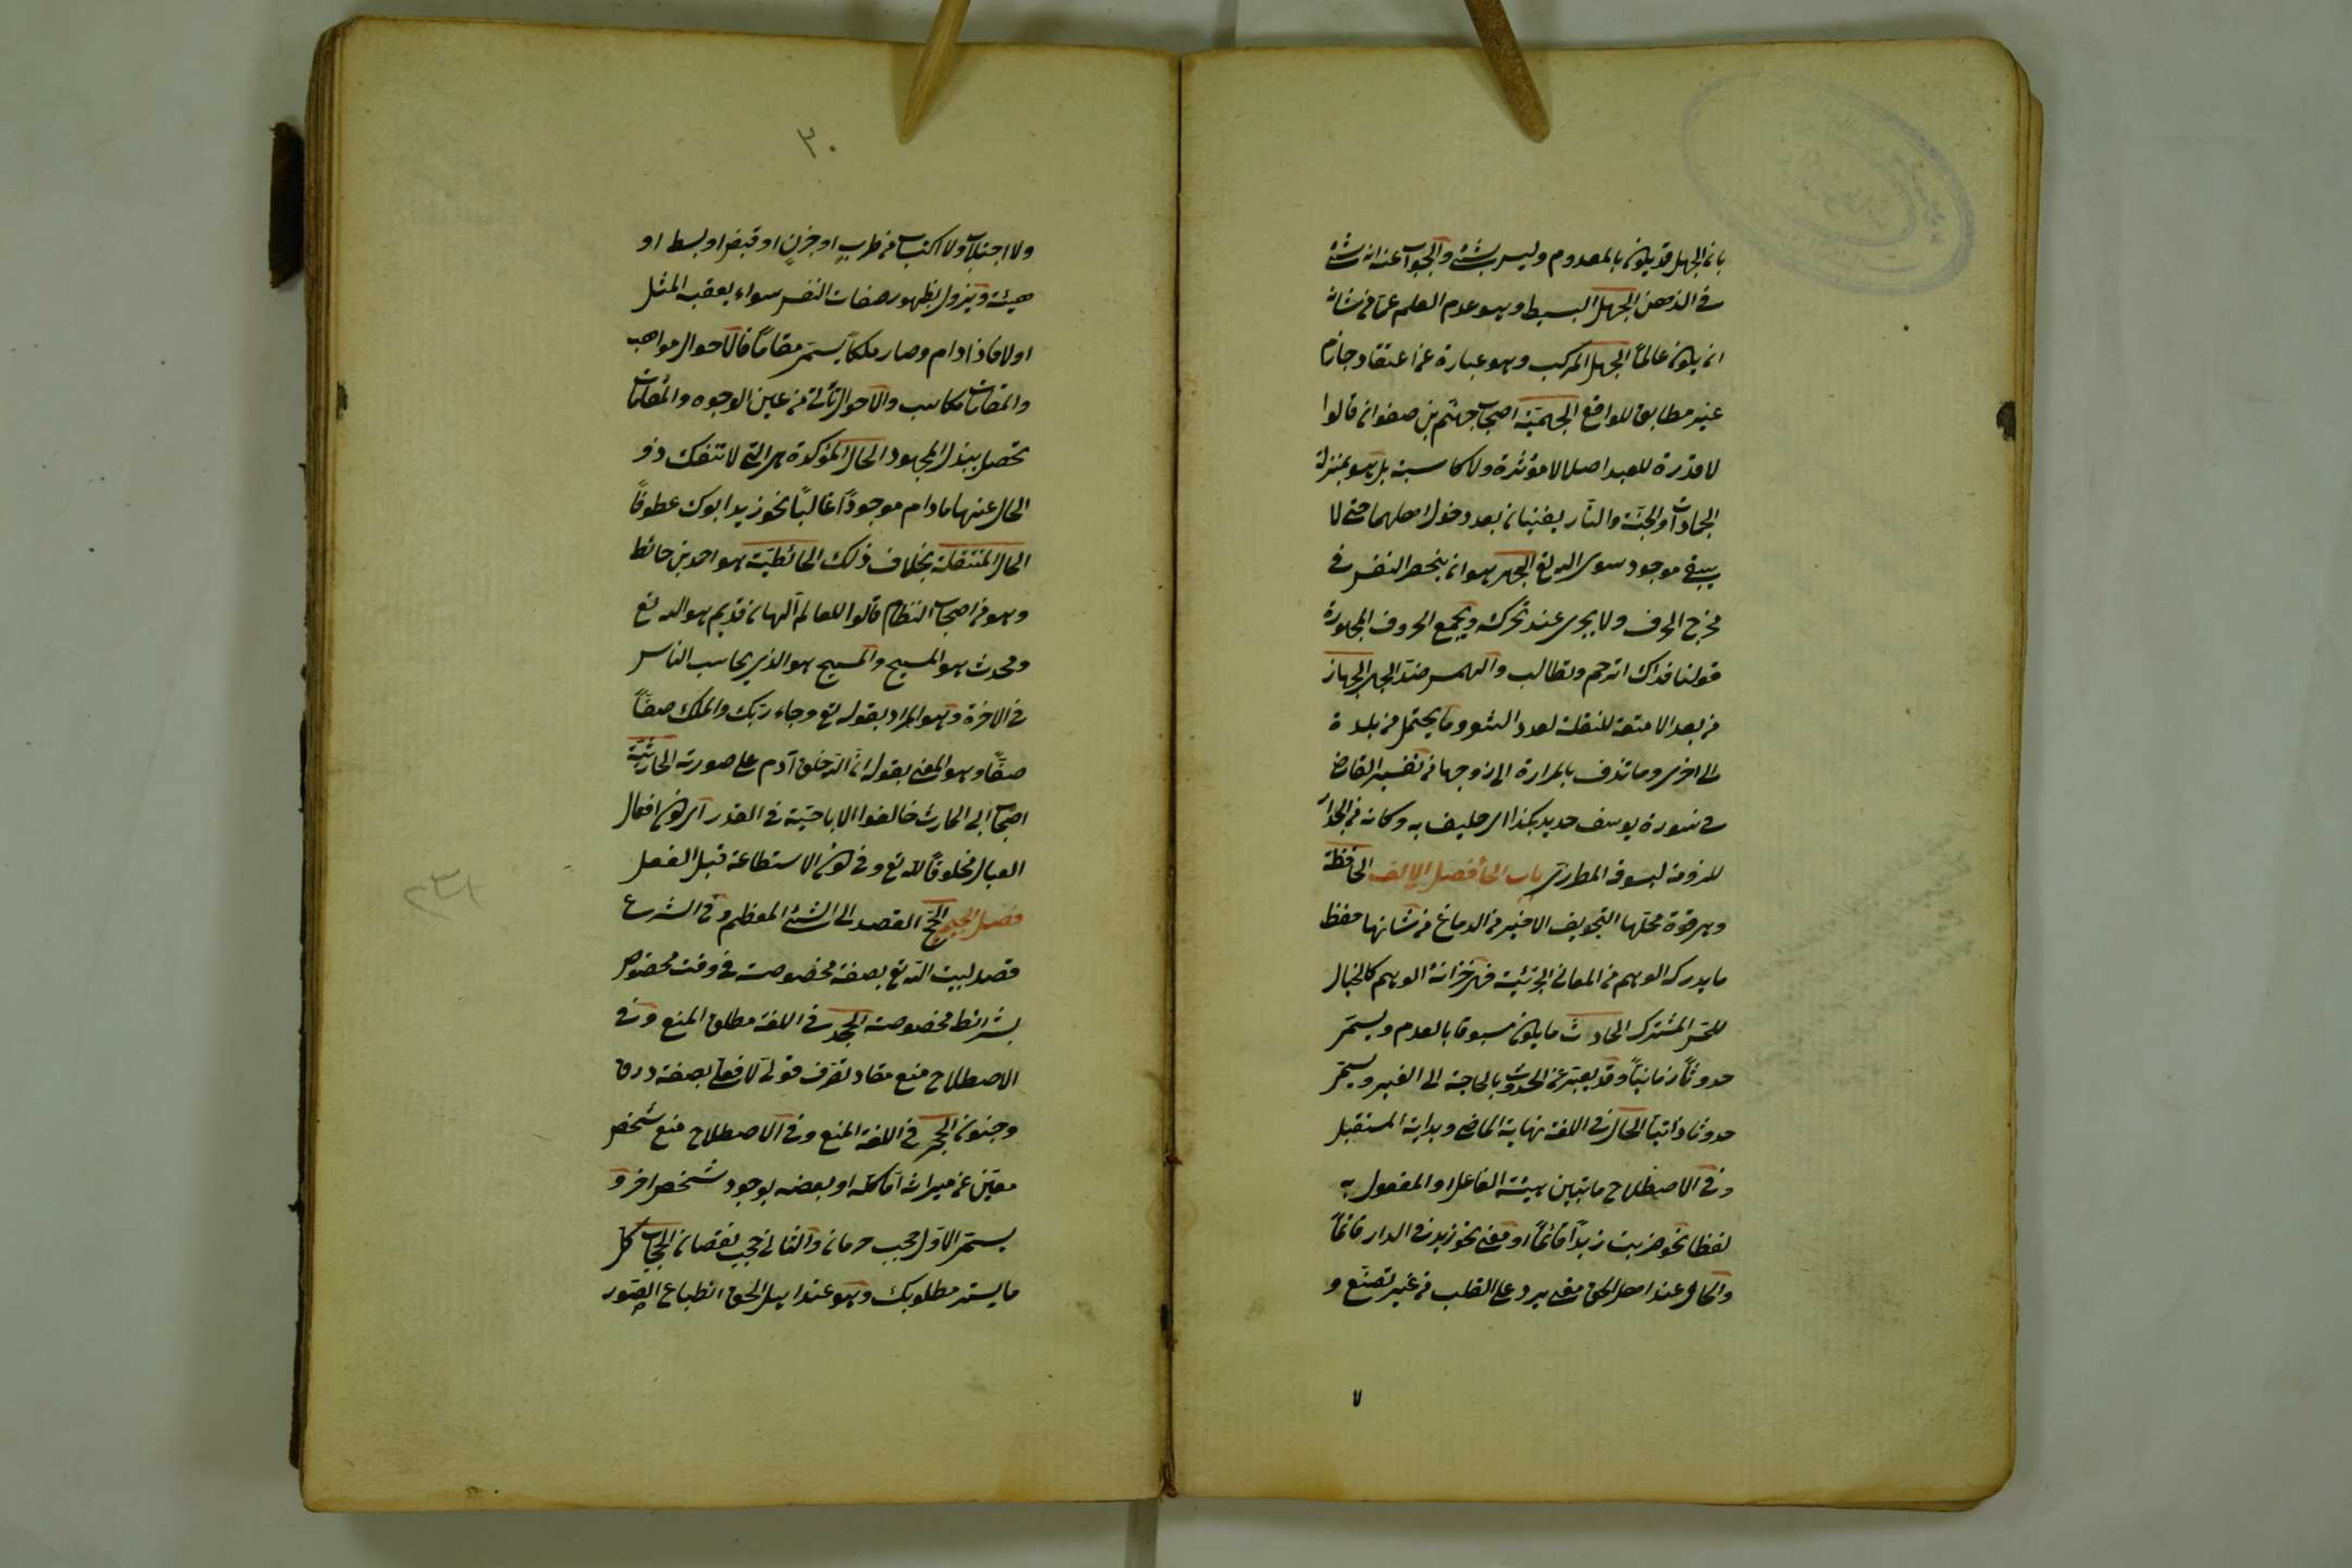 بان الجهل قد يكون بالمعدوم وليس بشئ والجواب عنه انه شئ
في الذهن الجهل البسيط وهو عدم العلم عما من شانه
ان يكون عالماً الجهل المركب وهو عبارة عن اعتقاد جازم
غير مطابق للواقع الجهمية اصحاب جهم بن صفوان قالوا
لا قدرة للعبد اصلا لا مؤثرة ولا كاسبة بل هو بمنزلة
الجمادات والجنة والنار يفنيان بعد دخول اهلهما حتى لا
يبقى موجود سوى الله تع الجهر هو ان ينحصر النفس في
مخرج الحرف ولا يجرى عند تحركه ويجمع الحروف المجهورة
قولنا ترحم وتطالب والهمس ضد الجهر الجهاز
من بعد الامتعة للنقلة لعدد وما يحتمل من بلدة
الى اخرى وما تزف بالمرارة الى زوجها من تفسير القاضى
في سورة يوسف به وكانه من
للمطرزى باب الحا فصل الالف الحافظة
وهى قوة محلها التجويف الاخير من الدماغ من شانها حفظ
ما يدركه الوهم من المعانى الجزئية فهى خزانة الوهم كالخيال
للحس المشترك الحادث ما يكون مسبوقا بالعدم ويسمى
حدوثاً زمانياً وقد يعبر عن الحدوث بالحاجة الى الغير ويسمى
حدوثا ذاتيا الحال في اللغة نهاية الماضى وبداية المستقبل
وفي الاصطلاح ما يبين هيئة الفاعل او المفعول به
لفظا نحو ضربت زيداً قائماً او معنى نحو زيد في الدار قائماً
والحال عند اهل الحق معنى يرد على القلب من غير تصنع و
٧
٣٠
ولا اجتلاب ولا اكتساب من طرب او حزن او قبض او بسط او
هيئة ويزول بظهور صفات النفس سواء يعقبه المثل
اولا فاذا دام وصار ملكاً يسمى مقاماً فالاحوال مواهب
والمقامات مكاسب والاحوال تأتى من عين الوجوه والمقامات
تحصل ببذل المجهود الحال المؤكدة هى التى لا تنفك ذو
الحال عنها ما دام موجوداً غالباً نحو زيد ابوك عطوفاً
الحال المنتقلة بخلاف ذلك الحائطية هو احمد بن حائط
وهو من اصحاب النظام قالوا للعالم آلهان قديم هو الله تع
ومحدث هو المسيح والمسيح هو الذى يحاسب الناس
في الاخرة وهو المراد بقوله تع وجاء ربك والملك صفاً
صفاً وهو المعنى بقوله ان الله خلق آدم على صورته الحارثية
اصحاب ابى الحارث خالفوا الاباحية في القدر اى كون افعال
العباد مخلوقاً لله تع وفي كون الاستطاعة قبل الفعل
فصل الجيم الحج القصد الى الشئ المعظم وفي الشرع
قصد لبيت الله تع بصفة مخصوصة في وقت مخصوص
بشرائط مخصوصة الحجر في اللغة مطلق المنع وفي
الاصطلاح منع نفاد تصرف قولى لا فعلى بصغر ورق
وجنون الحجب في اللغة المنع وفي الاصطلاح منع شخص
معين عن ميراثه اما كله او بعضه بوجود شخص اخر و
يسمى الاول حجب حرمان والثانى حجب نقصان الحجاب كل
ما يستر مطلوبك وهو عند اهل الحق انطباع الصور